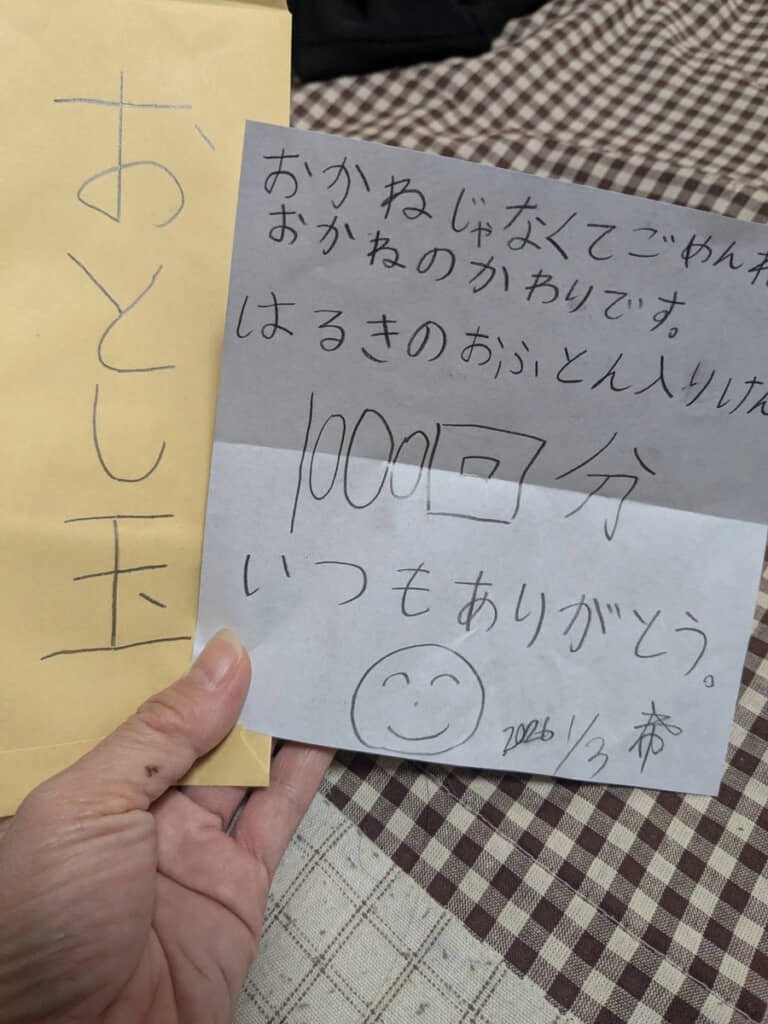 おとし玉
おかねじゃなくてごめんね
おかねのかわりです。
はるきのおふとん入りけん
1000回分
いつもありがとう。
2026 1/3 希